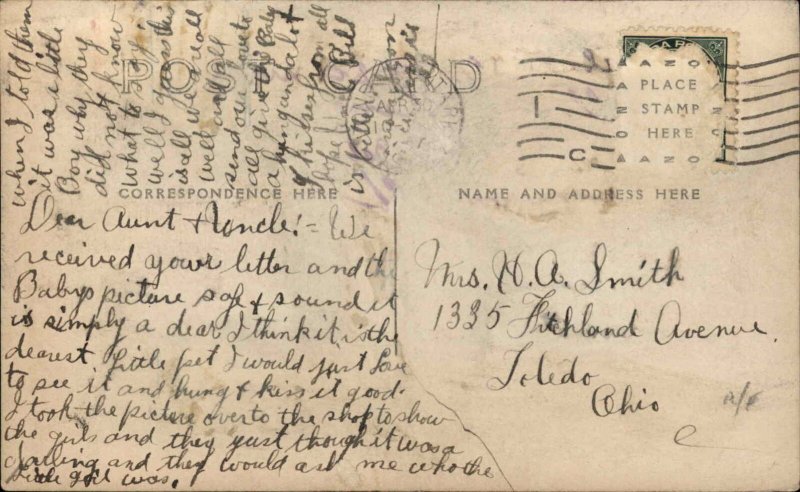 POST CARD
CORRESPONDENCE HERE
NAME AND ADDRESS HERE
PLACE
STAMP
HERE
Dear Aunt & Uncle! = We
received your letter and the
Babys picture safe & sound it
is simply a dear I think it is the
dearest Little pet I would just Love
to see it and hung & kiss it good.
I took the picture over to the shop to show
the girls and they just thought it was a
darling and they would ask me who the
little girl was.
when I told them
it was a little
Boy why they
did not know
what to say
well I guess this
is all we are all
well and all
send our love to
all give the Baby
a hung and a lot
of kisses from all
hope Bill
is better
Mrs. H. A. Smith
1335 Avenue.
Toledo
Ohio